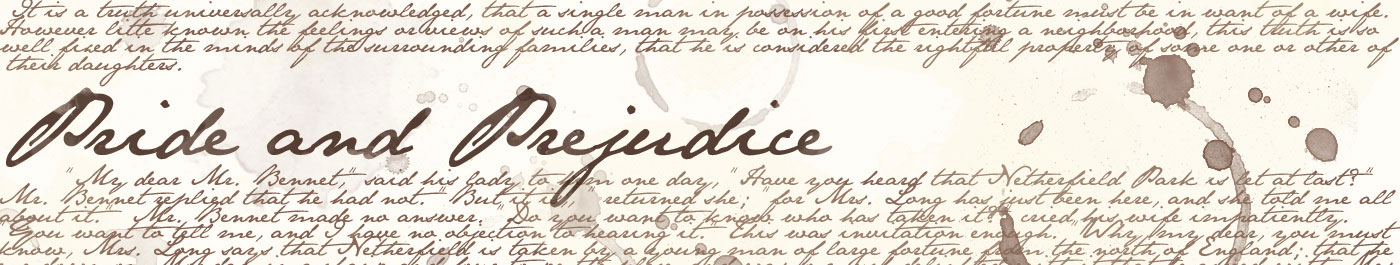 It is a truth universally acknowledged, that a single man in possession of a good fortune must be in want of a wife.
However litte known the feelings or views of such a man may be on his first entering a neighborhood, this truth is so
well fixed in the minds of the surrounding families, that he is considered the rightful property of some one or other of
their daughters.
Pride and Prejudice
"My dear Mr. Bennet," said his lady to him one day, "Have you heard that Netherfield Park is let at last?"
Mr. Bennet replied that he had not. "But it is," returned she; "for Mrs. Long has just been here, and she told me all
about it." Mr. Bennet made no answer. "Do you want to know who has taken it?" cried his wife impatiently.
"You want to tell me, and I have no objection to hearing it." This was invitation enough. "Why, my dear, you must
know, Mrs. Long says that Netherfield is taken by a young man of large fortune from the north of England; that he